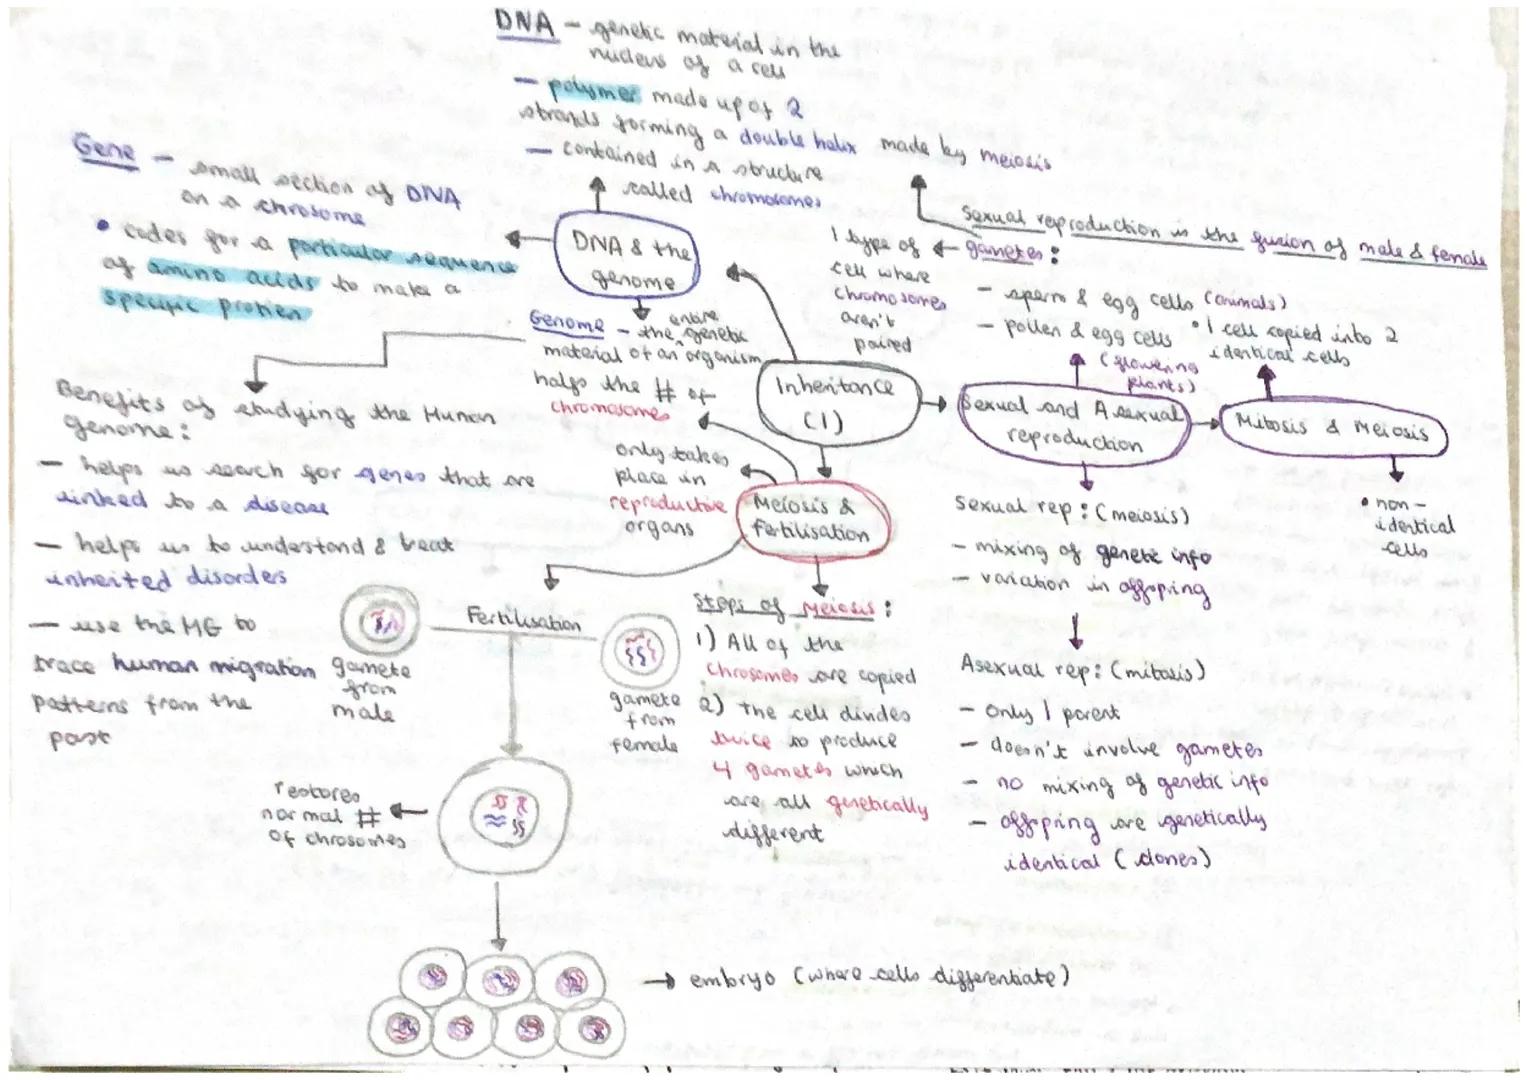 DNA - genetic material in the
nucleus of a cell
- polymer made up of 2
strands forming a double helix
- contained in a structure
called chromosomes
Gene - small section of DNA
on a chrosome
• codes for a particular sequence
of amino acids to make a
specific protien
DNA & the
genome
Genome - the entire genetic
material of an organism
Benefits of studying the Human
genome:
- helps us search for genes that are
linked to a disease
- helps us to understand & treat
inherited disorders
- use the HG to
trace human migration
patterns from the
past
Inheritance
(1)
made by meiosis
Sexual reproduction is the fusion of male & female
gametes:
1 type of
cell where
chromosomes
aren't
paired
- sperm & egg cells (animals)
- pollen & egg cells
(flowering
plants)
Sexual and Asexual
reproduction
Sexual rep: (meiosis)
- mixing of genetic info
- variation in offspring
Asexual rep: (mitosis)
- only 1 parent
- doesn't involve gametes
- no mixing of genetic info
- offspring are genetically
identical (clones)
• 1 cell copied into 2
identical cells
Mitosis & Meiosis
• non-
identical
cells
Meiosis &
fertilisation
halfs the # of
chromosomes
only takes
place in
reproductive
organs
Steps of Meiosis:
1) All of the
chrosomes are copied
2) The cell divides
twice to produce
4 gametes which
are all genetically
different
Fertilisation
gamete
from
male
gamete
from
female
restores
normal #
of chrosomes
embryo (where cells differentiate)